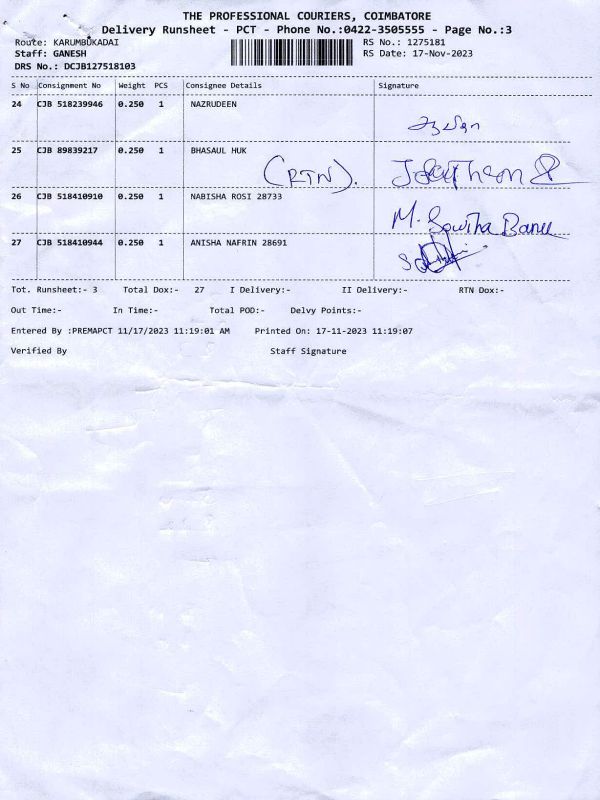 THE PROFESSIONAL COURIERS, COIMBATORE
Delivery Runsheet - PCT - Phone No.:0422-3505555 - Page No.:3
Route: KARUMBUKADAI RS No.: 1275181
Staff: GANESH RS Date: 17-Nov-2023
DRS No.: DCJB127518103
S No Consignment No Weight PCS Consignee Details Signature
24 CJB 518239946 0.250 1 NAZRUDEEN
25 CJB 89839217 0.250 1 BHASAUL HUK
(RTN).
26 CJB 518410910 0.250 1 NABISHA ROSI 28733
M. Sowtha Banu
27 CJB 518410944 0.250 1 ANISHA NAFRIN 28691
Tot. Runsheet:- 3 Total Dox:- 27 I Delivery:- II Delivery:- RTN Dox:-
Out Time:- In Time:- Total POD:- Delvy Points:-
Entered By :PREMAPCT 11/17/2023 11:19:01 AM Printed On: 17-11-2023 11:19:07
Verified By Staff Signature